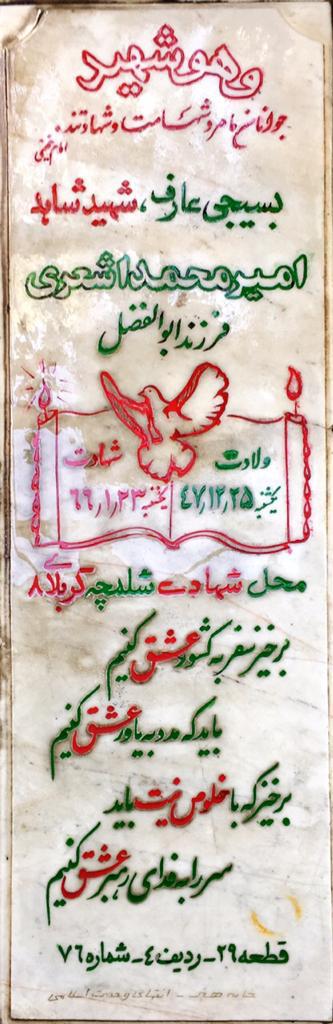 وهو شهید
جوانان ما مرد شهامت و شهادتند
امام خمینی
بسیجی عارف، شهید شاهد
امیرمحمد اشعری
فرزند ابوالفضل
ولادت
شهادت
یکشنبه ۴۷,۱۲,۲۵
یکشنبه ۶۶,۱,۲۳
محل شهادت شلمچه کربلای ۸
برخیز سفر به کشور عشق کنیم
باید که مدد به یاور عشق کنیم
برخیز که با خلوص نیت باید
سر را به فدای رهبر عشق کنیم
قطعه ۲۹ - ردیف ۴ - شماره ۷۶